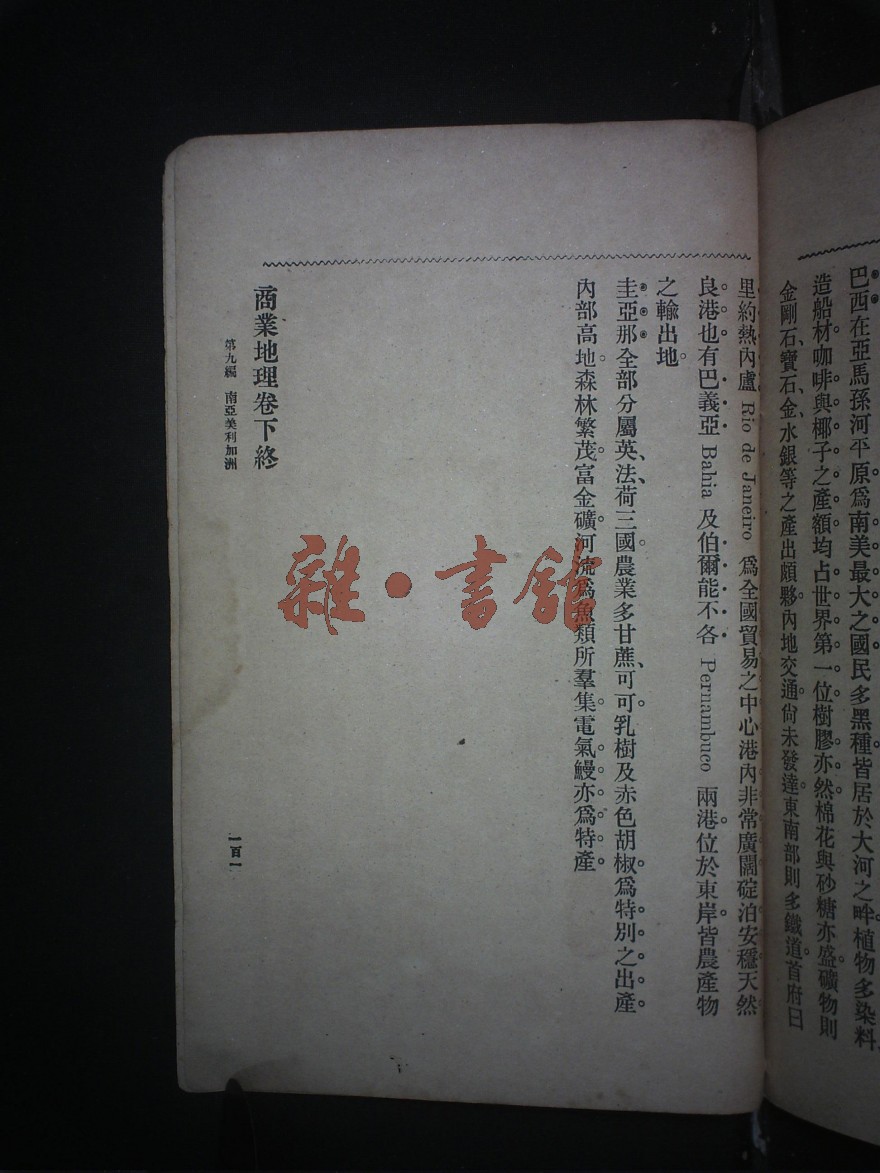 巴西在亞馬孫河平原爲南美最大之國民多黑種皆居於大河之畔植物多染料、
造船材咖啡與椰子之產額均占世界第一位樹膠亦然棉花與砂糖亦盛礦物則
金剛石、寶石、金、水銀等之產出頗夥內地交通尙未發達東南部則多鐵道首府曰
里約熱內盧 Rio de Janeiro 爲全國貿易之中心港內非常廣闊碇泊安穩天然
良港也有巴義亞 Bahia 及伯爾能不各 Pernambuco 兩港位於東岸皆農產物
之輸出地。
圭亞那全部分屬英、法、荷三國農業多甘蔗、可可乳樹及赤色胡椒爲特別之出產
內部高地森林繁茂富金礦河流爲魚類所羣集電氣鰻亦爲特產。
商業地理卷下終
第九編 南亞美利加洲
一百一
雜·書館